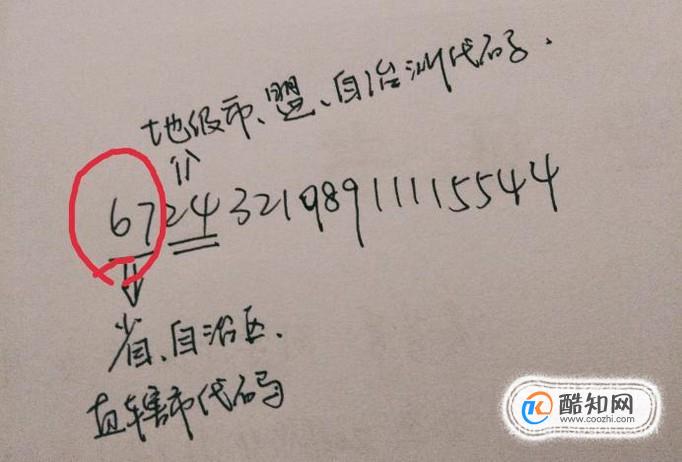 地级市、盟、自治州代码、
672432198911115544
省、自治区、
直辖市代码
酷知网
www.coozhi.com